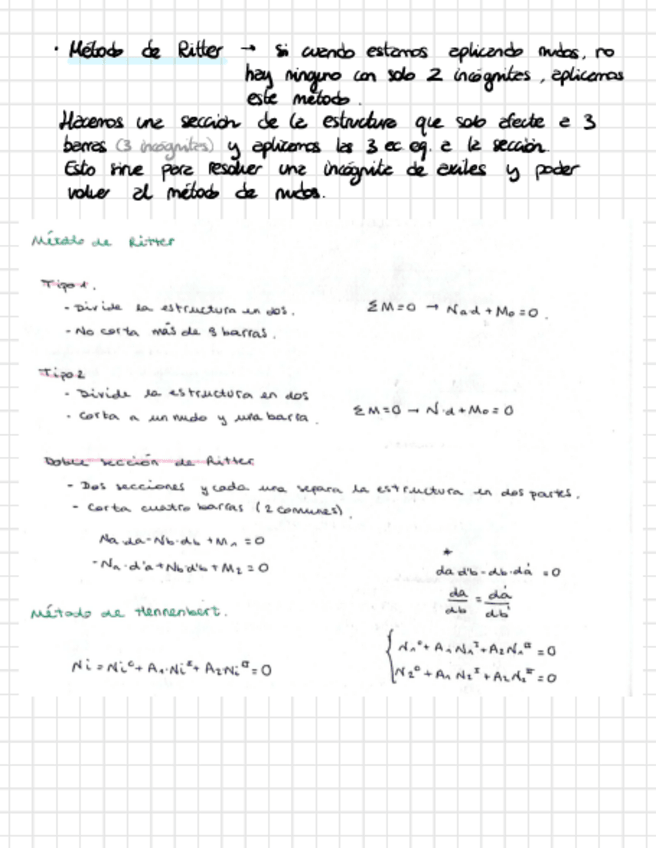 · Método de Ritter → si cuando estamos aplicando nudos, no
hay ninguno con solo 2 incógnitas, aplicamos
este método.
Hacemos una sección de la estructura que solo afecte a 3
barras (3 incógnitas) y aplicamos las 3 ec eq. a la sección.
Esto sirve para resolver una incógnita de axiles y poder
volver al método de nudos.
Método de Ritter
Tipo 1.
- Divide la estructura en dos.
ΣM=0 → Na d + Mo = 0.
- No corta más de 3 barras.
Tipo 2
- Divide la estructura en dos
- Corta a un nudo y una barra.
ΣM=0 → N·d + Mo = 0
Doble sección de Ritter
- Dos secciones y cada una separa la estructura en dos partes.
- Corta cuatro barras (2 comunes).
Na da - Nb·db + M₁ = 0
-Na·d'a + Nb d'b + M₂ = 0
*
da d'b - db·d'a = 0
da/db = d'a/d'b
Método de Hennenbert.
Ni = Ni° + A₁·Niᴵ + A₂Niᴵᴵ = 0
N₁° + A₁N₁ᴵ + A₂N₁ᴵᴵ = 0
N₂° + A₁N₂ᴵ + A₂N₂ᴵᴵ = 0